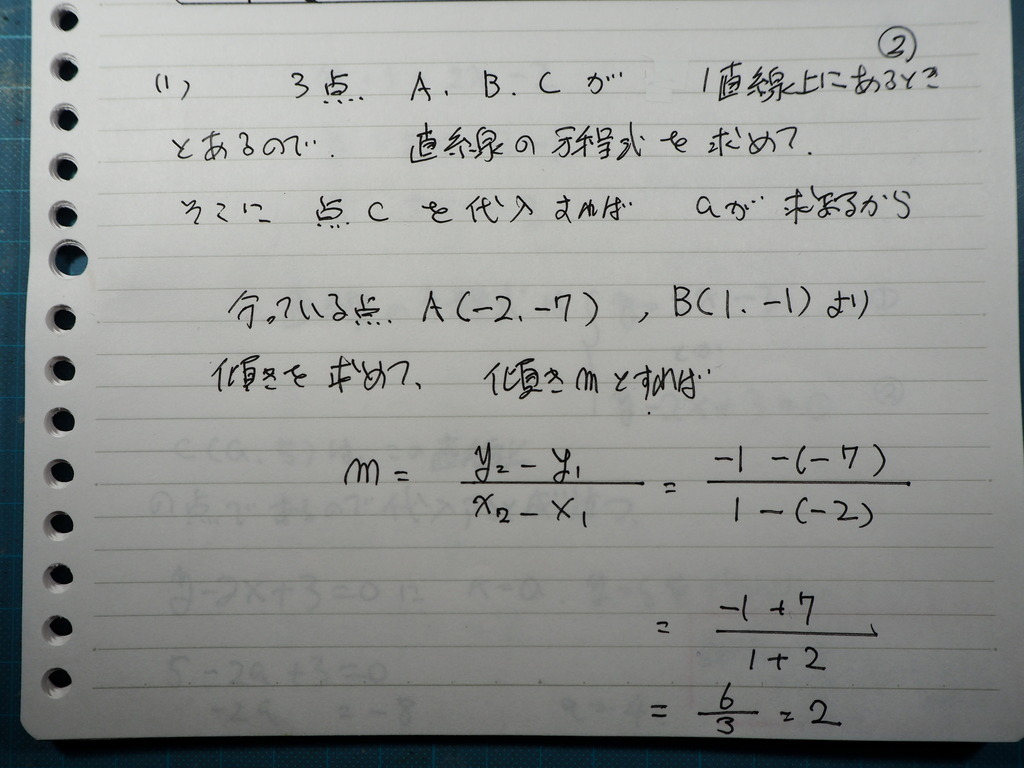 ②
(1) 3点 A. B. C が 1直線上にあるとき
とあるので. 直線の方程式を求めて.
そこに 点 C を代入すれば aが求まるから
分っている点 A(-2,-7), B(1.-1)より
傾きを求めて、 傾きmとすれば
m = y₂ - y₁ / x₂ - x₁ = -1 -(-7) / 1 -(-2)
= -1 + 7 / 1 + 2
= 6/3 = 2
y-2x+3=0に
5-2a+3=0
-2a = -8 a=4